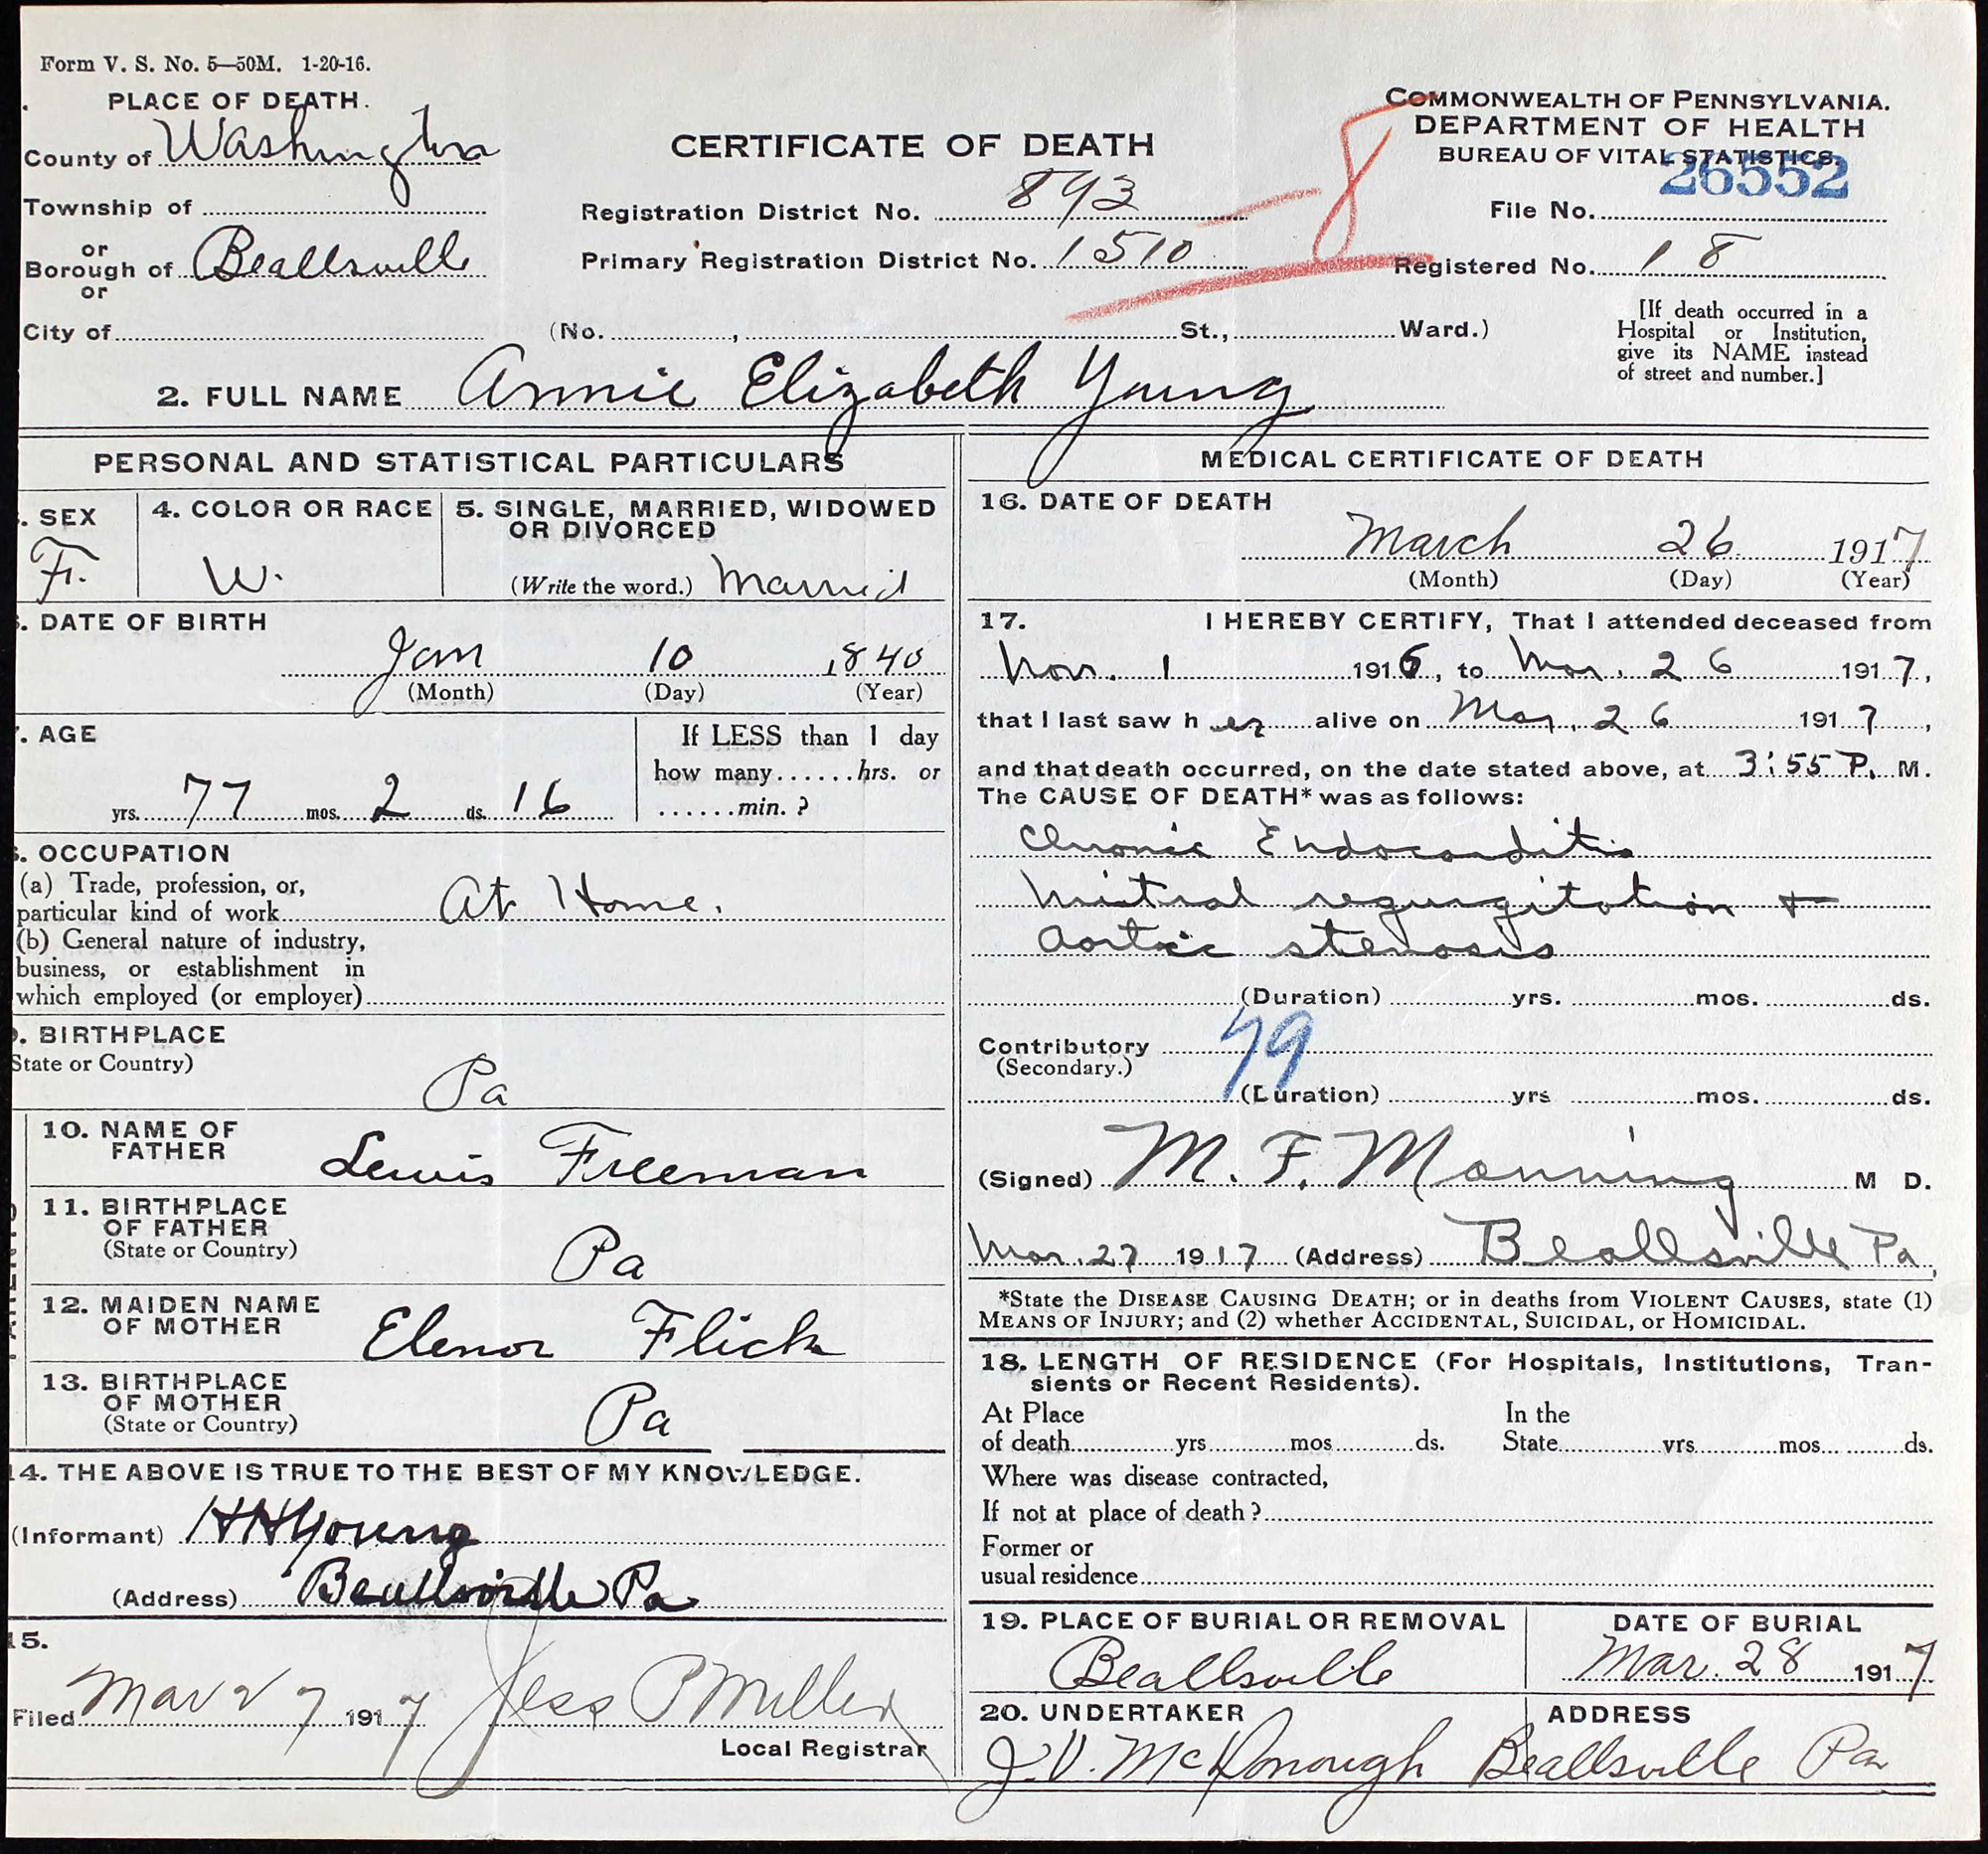 Form V. S. No. 5—50M. 1-20-16.
PLACE OF DEATH.
County of Washington
Township of
or
Borough of Beallsville
or
City of
CERTIFICATE OF DEATH
Registration District No. 893
Primary Registration District No. 1510
-8
(No. , St., Ward.)
COMMONWEALTH OF PENNSYLVANIA.
DEPARTMENT OF HEALTH
BUREAU OF VITAL STATISTICS.
26552
File No.
Registered No. 18
[If death occurred in a
Hospital or Institution,
give its NAME instead
of street and number.]
2. FULL NAME Annie Elizabeth Young
PERSONAL AND STATISTICAL PARTICULARS
. SEX
F.
4. COLOR OR RACE
W.
5. SINGLE, MARRIED, WIDOWED
OR DIVORCED
(Write the word.) Married
. DATE OF BIRTH
Jan 10 1840
(Month) (Day) (Year)
. AGE
yrs. 77 mos. 2 ds. 16
If LESS than 1 day
how many......hrs. or
......min. ?
. OCCUPATION
(a) Trade, profession, or,
particular kind of work At Home.
(b) General nature of industry,
business, or establishment in
which employed (or employer)
. BIRTHPLACE
State or Country)
Pa
10. NAME OF
FATHER
Lewis Freeman
11. BIRTHPLACE
OF FATHER
(State or Country)
Pa
12. MAIDEN NAME
OF MOTHER
Elenor Flick
13. BIRTHPLACE
OF MOTHER
(State or Country)
Pa
14. THE ABOVE IS TRUE TO THE BEST OF MY KNOWLEDGE.
(Informant) HH Young
(Address) Beallsville Pa
15.
Filed Mar 27 1917 Jess P Miller
Local Registrar
MEDICAL CERTIFICATE OF DEATH
16. DATE OF DEATH
March 26 1917
(Month) (Day) (Year)
17. I HEREBY CERTIFY, That I attended deceased from
Nov. 1 1916, to Mar. 26 1917,
that I last saw h er alive on Mar. 26 1917,
and that death occurred, on the date stated above, at 3:55 P. M.
The CAUSE OF DEATH* was as follows:
Chronic Endocarditis
Mitral regurgitation +
Aortic stenosis
(Duration) yrs. mos. ds.
Contributory
(Secondary.)
79
(Duration) yrs mos. ds.
(Signed) M. F. Manning M D.
Mar. 27 1917 (Address) Beallsville Pa,
*State the DISEASE CAUSING DEATH; or in deaths from VIOLENT CAUSES, state (1)
MEANS OF INJURY; and (2) whether ACCIDENTAL, SUICIDAL, or HOMICIDAL.
18. LENGTH OF RESIDENCE (For Hospitals, Institutions, Tran-
sients or Recent Residents).
At Place
of death yrs mos ds.
In the
State yrs mos ds.
Where was disease contracted,
If not at place of death ?
Former or
usual residence
19. PLACE OF BURIAL OR REMOVAL
Beallsville
DATE OF BURIAL
Mar. 28 1917
20. UNDERTAKER
J. V. McDonough
ADDRESS
Beallsville Pa